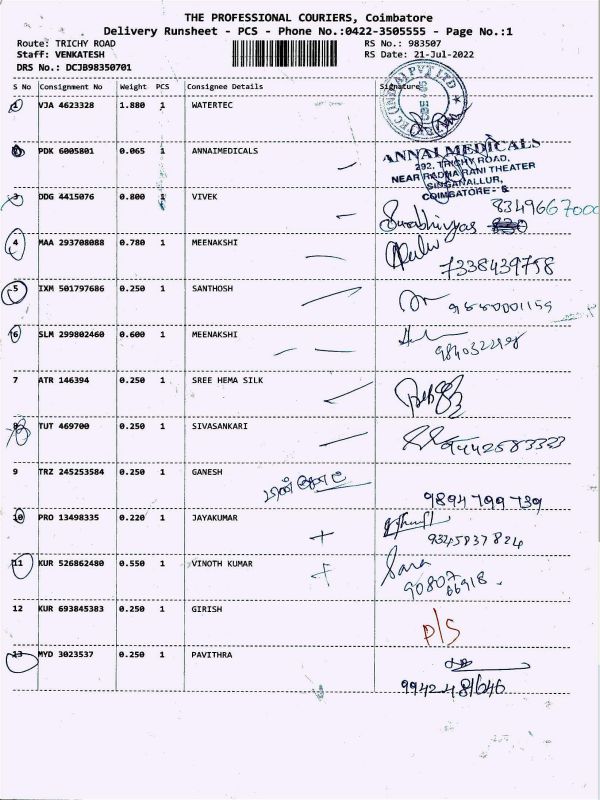 THE PROFESSIONAL COURIERS, Coimbatore
Delivery Runsheet - PCS - Phone No.:0422-3505555 - Page No.:1
Route: TRICHY ROAD RS No.: 983507
Staff: VENKATESH RS Date: 21-Jul-2022
DRS No.: DCJB98350701
S No Consignment No Weight PCS Consignee Details Signature
VJA 4623328 1.880 1 WATERTEC
PDK 6005801 0.065 1 ANNAIMEDICALS
ANNAI MEDICALS
292, TRICHY ROAD,
NEAR RADHA RANI THEATER
SINGANALLUR,
COIMBATORE - 5
3 DDG 4415076 0.800 1 VIVEK 8349667000
4 MAA 293708088 0.780 1 MEENAKSHI
7338439758
5 IXM 501797686 0.250 1 SANTHOSH
6 SLM 299802460 0.600 1 MEENAKSHI
7 ATR 146394 0.250 1 SREE HEMA SILK
8 TUT 469700 0.250 1 SIVASANKARI
9442583323
9 TRZ 245253584 0.250 1 GANESH
9894799739
10 PRO 13498335 0.220 1 JAYAKUMAR
9345837824
11 KUR 526862480 0.550 1 VINOTH KUMAR Sara
90807
66918
12 KUR 693845383 0.250 1 GIRISH
P/S
13 MYD 3023537 0.250 1 PAVITHRA
9942481646